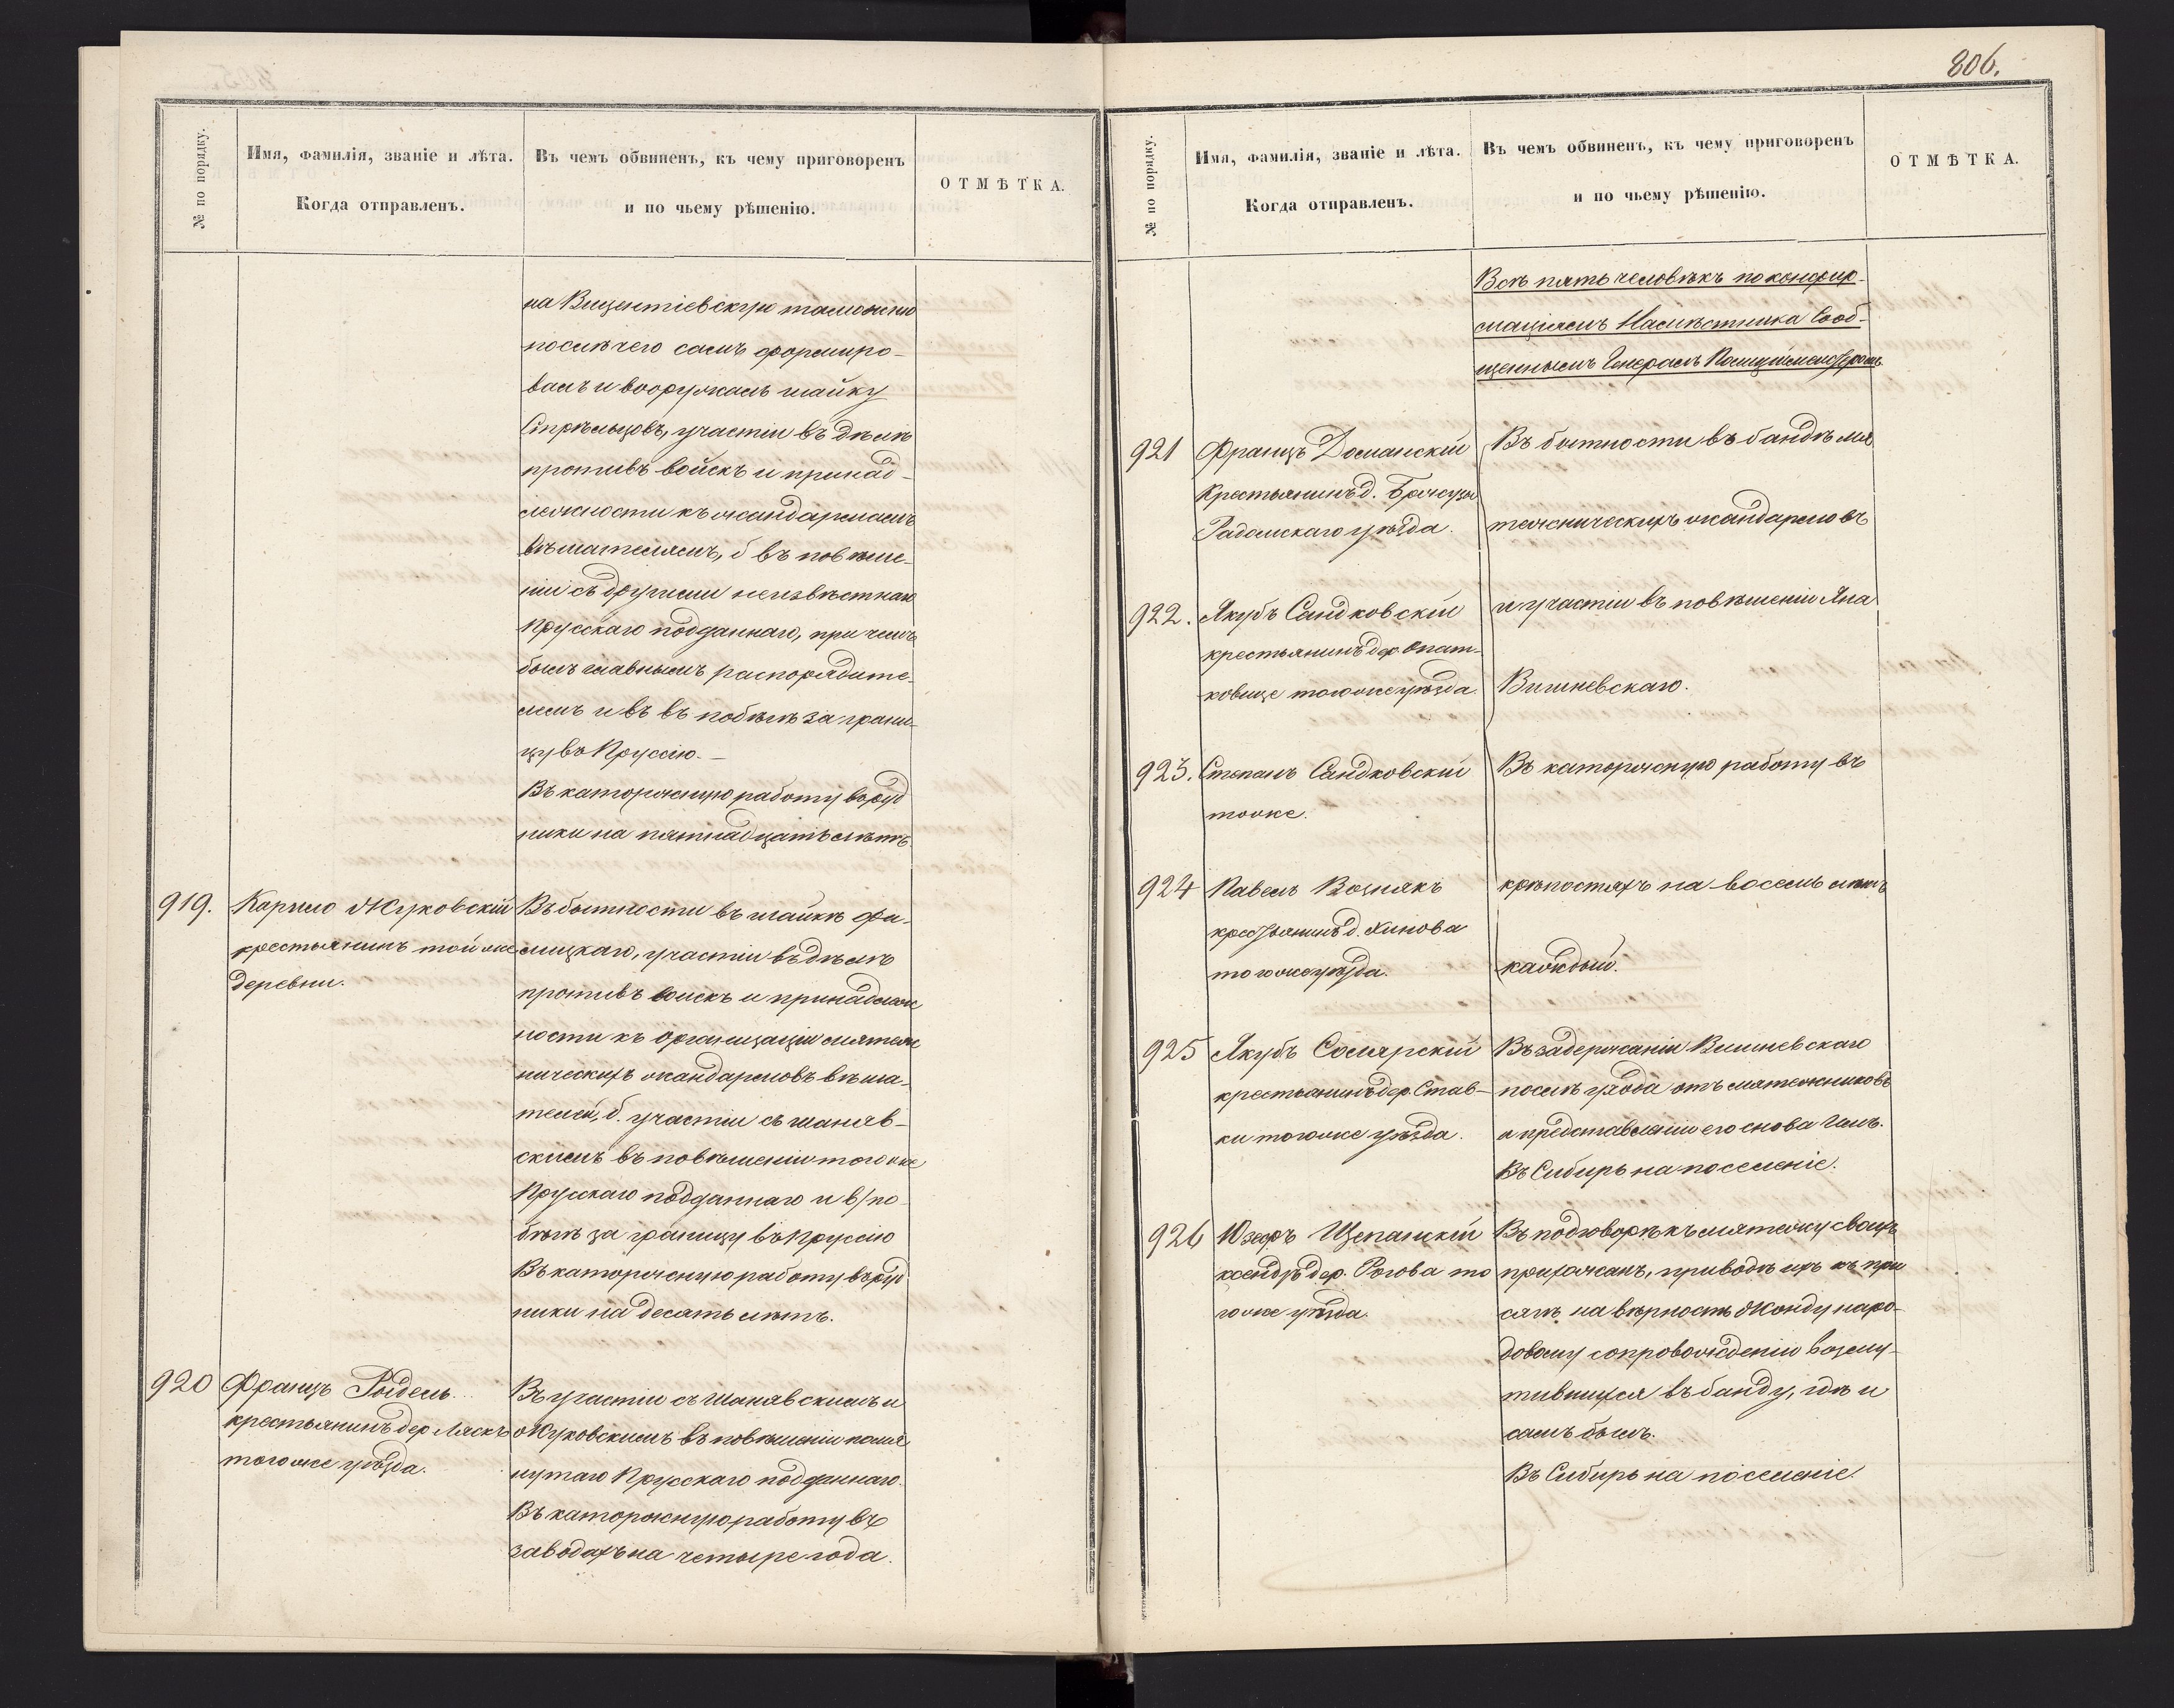 № по порядку.
Имя, фамилія, званіе и лѣта.
Когда отправленъ.
Въ чемъ обвиненъ, къ чему приговоренъ
и по чьему рѣшенію.
ОТМѢТКА.
на Вицентіевскую таможню
послѣ чего самъ формиро-
валъ и вооружалъ шайку
Стрѣльцовъ, участіи въ дѣлѣ
противъ войскъ и принад-
лежности къ жандармамъ
вѣшателямъ, б въ повѣше-
ніи съ другими неизвѣстнаго
Прусскаго подданнаго, при чемъ
былъ главнымъ распорядите-
лемъ и въ въ побѣгѣ за грани-
цу въ Пруссію.—
Въ каторжную работу въ руд
ники на пятнадцать лѣтъ.
919. Карлъ Жуковскій
крестьянинъ той же
деревни.
Въ бытности въ шайкѣ Фи-
лицкаго, участіи въ дѣлѣ
противъ войскъ и принадлеж
ности къ организаціи мятеж
ническихъ жандармовъ вѣша-
телей, б. участіи съ Шаняв-
скимъ въ повѣшеніи того же
Прусскаго подданнаго и в/ по
бѣгѣ за границу въ Пруссію
Въ каторжную работу въ руд
ники на десять лѣтъ.
920 Францъ Рыдель
крестьянинъ дер Ласкъ
того же уѣзда.
Въ участіи съ Шанявскимъ и
Жуковскимъ въ повѣшеніи помя
нутаго Прусскаго подданнаго.
Въ каторжную работу въ
заводахъ на четыре года.
806.
№ по порядку.
Имя, фамилія, званіе и лѣта.
Когда отправленъ.
Въ чемъ обвиненъ, къ чему приговоренъ
и по чьему рѣшенію.
ОТМѢТКА.
Всѣ пять человѣкъ по конфир-
маціямъ Намѣстника Сооб-
щеннымъ Генералъ Полиціймейстеромъ
921 Францъ Доманскій
Крестьянинъ д.
Радомскаго уѣзда.
Въ бытности въ бандѣ мя
тежническихъ жандармовъ
922. Якубъ Сандковскій
крестьянинъ дер. Опат-
ковице того же уѣзда.
и участіи въ повѣшеніи Яна
Вишневскаго.
923. Степанъ Сандковскій
тоже.
Въ каторжную работу въ
924 Павелъ Вознякъ
крестьянинъ д. Хинова
того же уѣзда.
крѣпостяхъ на восемь лѣтъ
каждый.
925 Якубъ Солярскій
крестьянинъ дер. Став-
ки того же уѣзда.
Въ задержаніи Вишневскаго
послѣ ухода отъ мятежниковъ
и представленіи его снова имъ.
Въ Сибирь на поселеніе.
926 Юзефъ Щепанскій
ксендзъ дер. Рогова то
го же уѣзда.
Въ подговорѣ къ мятежу своихъ
прихожанъ, приводѣ ихъ къ при
сягѣ на вѣрность Жонду наро-
довому сопровожденіи возму-
тившихся въ банду, гдѣ и
самъ былъ.
Въ Сибирь на поселеніе.